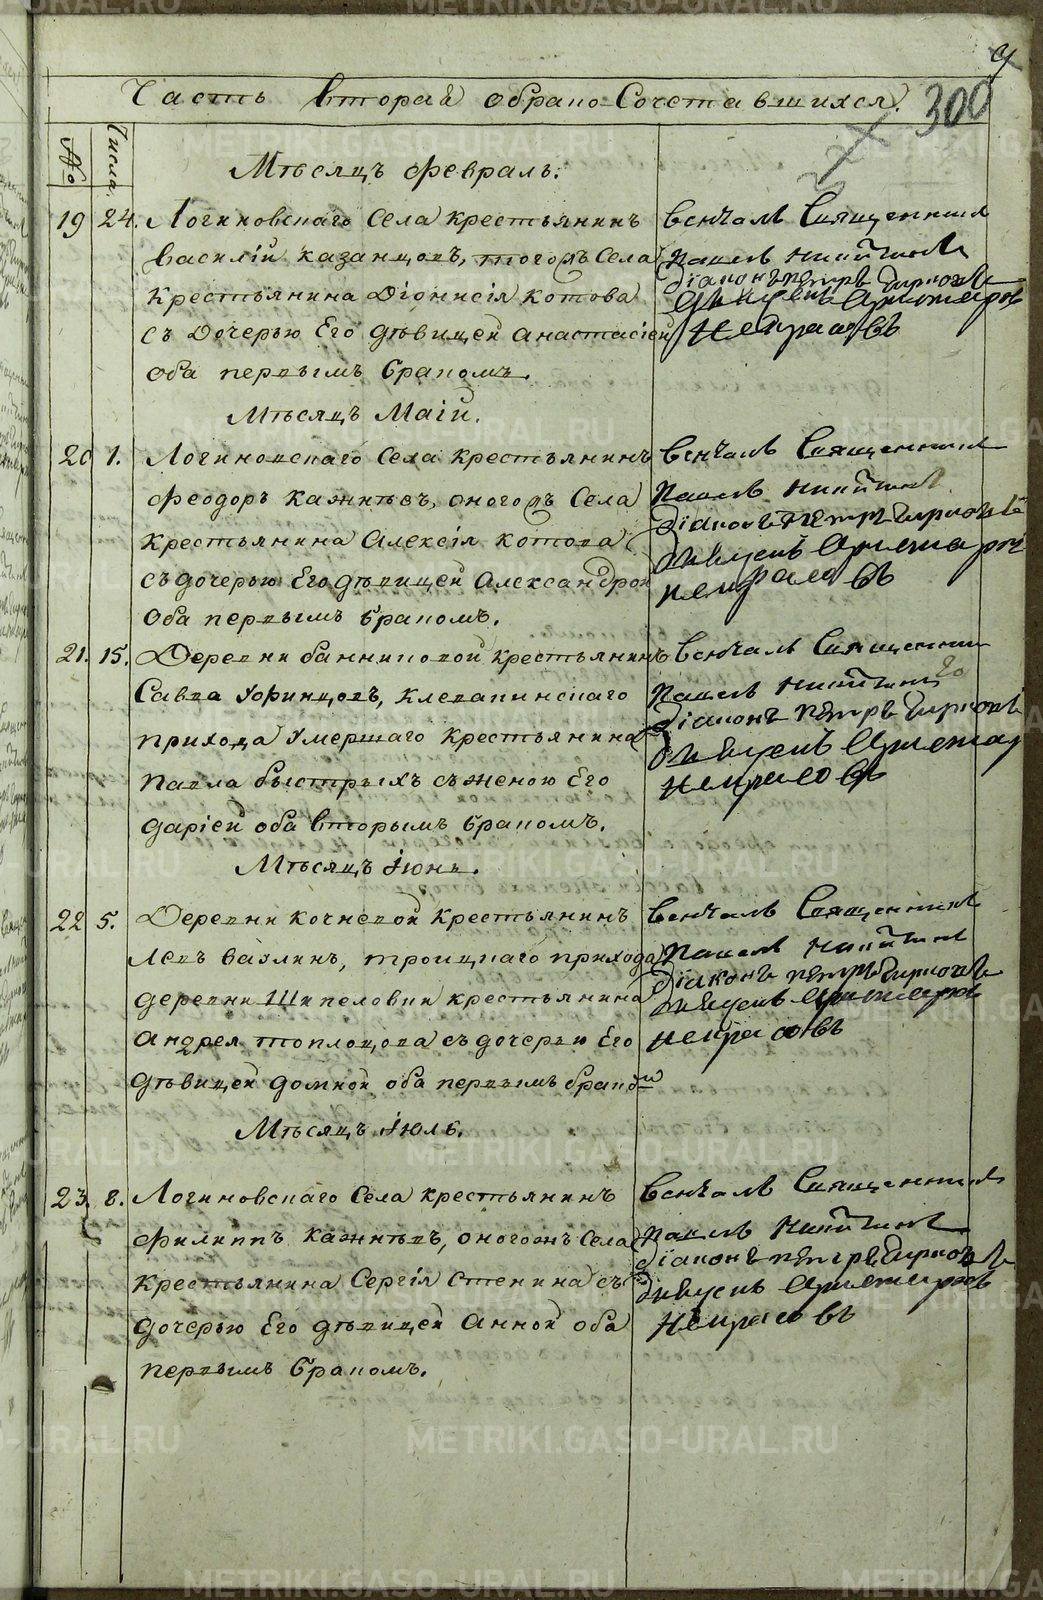 METRIKI.GASO-URAL.RU
Часть вторая о брако-Сочетавшихся.
300
№
Числа
Мѣсяцъ Февраль.
19 24. Логиновскаго Села крестьянинъ
Василій Казанцовъ, тогожъ Села
крестьянина Діонисія Котова
съ Дочерью Его дѣвицей Анастасіей
оба первымъ бракомъ.
Венчалъ Священникъ
Павелъ Никитинъ
Діаконъ Петръ
Некрасовъ
Мѣсяцъ Маій.
20 1. Логиновскаго Села крестьянинъ
Феодоръ Кажнѣвъ, оногожъ Села
крестьянина Алексія Котова
съ дочерью Его дѣвицей Александрой
Оба первымъ бракомъ.
Венчалъ Священникъ
Павелъ Никитинъ
Діаконъ Петръ
Некрасовъ
21. 15. Деревни Банниковой крестьянинъ
Савва Уфинцовъ, Клевакинскаго
прихода Умершаго крестьянина
Павла Быстрыхъ съ женою Его
Даріей оба вторымъ бракомъ.
Венчалъ Священникъ
Павелъ Никитинъ
Діаконъ Петръ
Некрасовъ
Мѣсяцъ Іюнь.
22 5. Деревни Кочневой крестьянинъ
Левъ Ваулинъ, троицкаго прихода
деревни Шипеловки крестьянина
Андрея Топлоцова съ дочерью Его
дѣвицей Домной оба первымъ бракомъ
Венчалъ Священникъ
Павелъ Никитинъ
Діаконъ Петръ
Некрасовъ
Мѣсяцъ Іюль.
23. 8. Логиновскаго Села крестьянинъ
Филиппъ Кажнѣвъ, оногожъ Села
Крестьянина Сергія Стенина съ
дочерью Его дѣвицей Анной оба
первымъ бракомъ.
Венчалъ Священникъ
Павелъ Никитинъ
Діаконъ Петръ
Некрасовъ